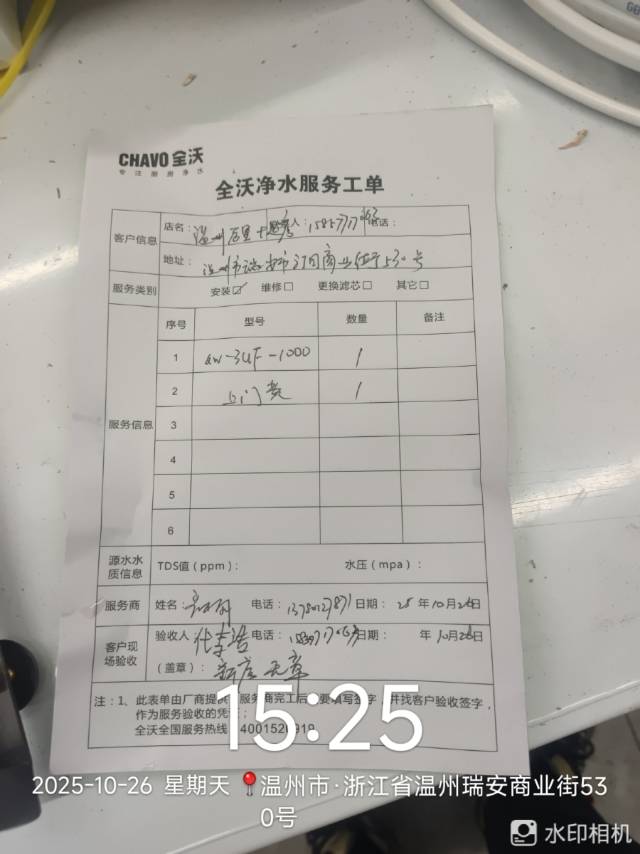 CHAVO 全沃
专注厨房净水
全沃净水服务工单
客户信息
店名: 温州
人:
电话:
地址: 温州市瑞安市 商业街530号
服务类别 安装☑ 维修□ 更换滤芯□ 其它□
服务信息
序号 型号 数量 备注
1 QW-3UF-1000 1
2 上门费 1
3
4
5
6
源水水质信息 TDS值(ppm): 水压(mpa):
服务商 姓名: 电话: 日期: 25年10月26日
客户现场验收 验收人 电话: 日期: 年10月26日
(盖章): 新店 无章
注:1、此表单由厂商提供,服务商完工后 要填写签字,并找客户验收签字,
作为服务验收的凭
全沃全国服务热线 4001526919
15:25
2025-10-26 星期天 温州市·浙江省温州瑞安商业街53
0号
水印相机